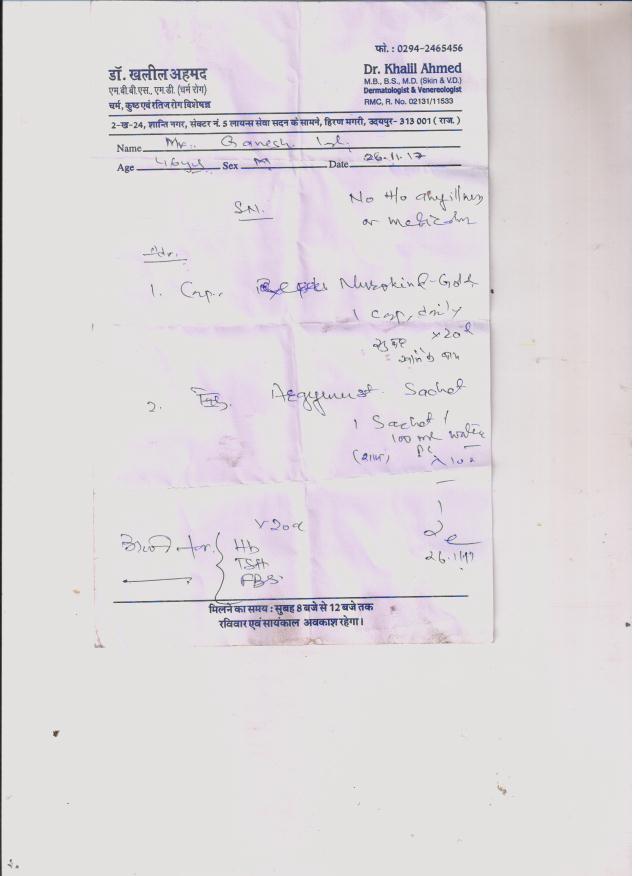 फो. : 0294-2465456
डॉ. खलील अहमद
एम.बी.बी.एस., एम.डी. (चर्म रोग)
चर्म, कुष्ठ एवं रतिज रोग विशेषज्ञ
Dr. Khalil Ahmed
M.B., B.S., M.D. (Skin & V.D.)
Dermatologist & Venereologist
RMC, R. No. 02131/11533
2-ख-24, शान्ति नगर, संक्टर नं. 5 लायन्स सेवा सदन के सामने, हिरण मगरी, उदयपुर- 313 001 ( राज. )
Name Mr. Ganesh
Age 46 yrs Sex M Date 26.11.17
No H/o any illness
or
Adv.
1. Cap. Nurokind-Gold
1 cap, daily
x20d
2. Sachet
1 Sachet /
100 ml water
(शाम)
Hb
TSH
FBS
26.11.17
मिलने का समय : सुबह 8 बजे से 12 बजे तक
रविवार एवं सायंकाल अवकाश रहेगा।